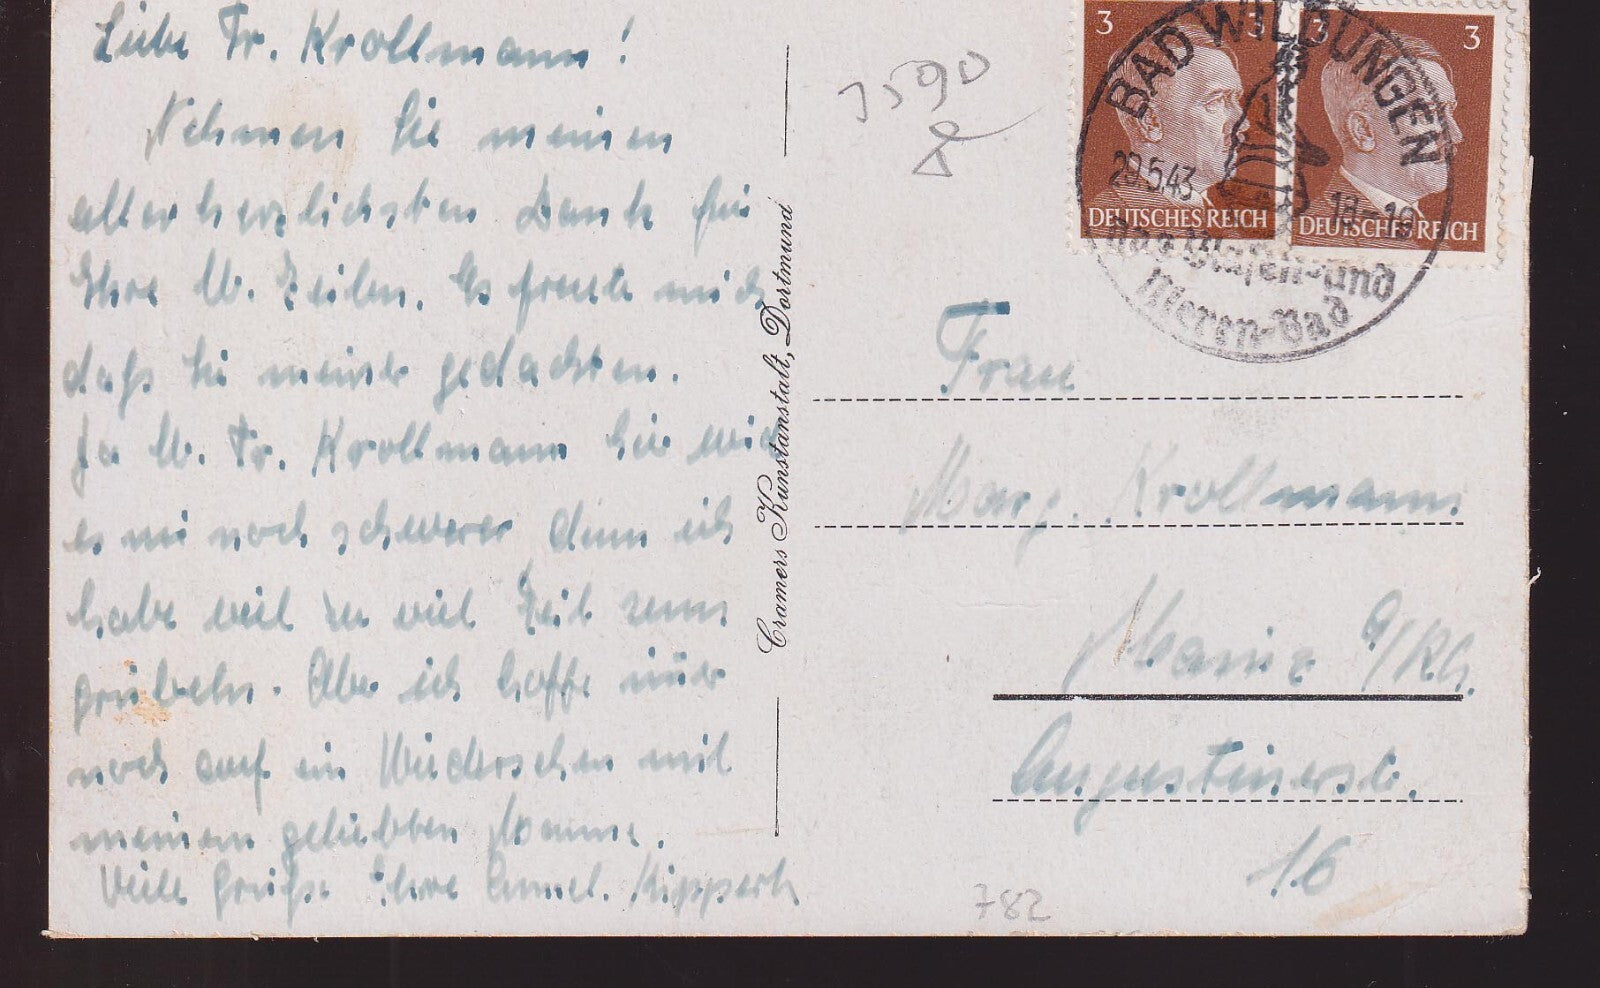 Liebe Fr. Krollmann!
Nehmen Sie meinen
allerherzlichsten Dank für
Ihre lb. Zeilen. Es freute mich
daß Sie meiner gedachten.
Ja lb. Fr. Krollmann Sie wird
es mir noch schwerer denn ich
habe weil zu viel Zeit zum
grübeln. Aber ich hoffe immer
noch auf ein Wiedersehen mit
meinem geliebten Manne.
Viele Grüße Ihre Kippert
Cramers Kunstanstalt, Dortmund
3590
3
3
DEUTSCHES REICH
DEUTSCHES REICH
BAD WILDUNGEN
29.5.43
18-19
das Blasen- und
Nieren-Bad
Frau
Marg. Krollmann
Mainz a/Rh.
Augustinerstr.
16
782